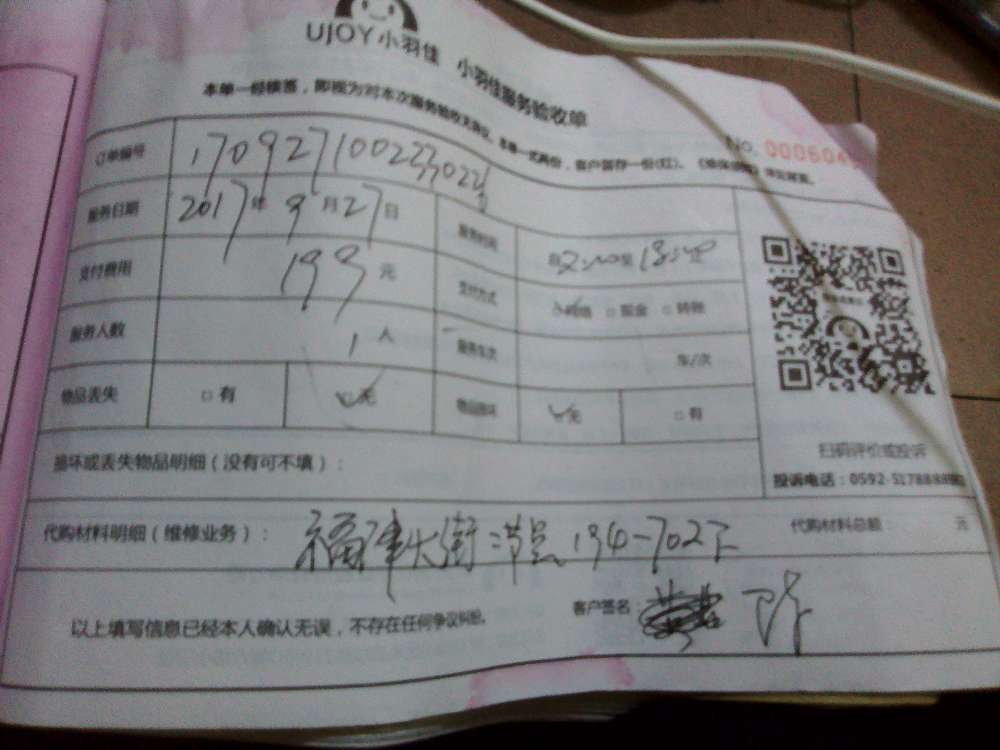 UJOY小羽佳 小羽佳服务验收单
本单一经核签，即视为对本次服务验收无异议。本单一式两份，客户留存一份(红)。
No. 000604
订单编号 170927100233023
服务日期 2017年9月27日 服务时间
支付费用 199元 支付方式 网络 □现金 □转账
服务人数 1人 服务车次 车/次
物品丢失 □有 无 物品损坏 无 □有
扫码评价或投诉
损坏或丢失物品明细（没有可不填）：
投诉电话：0592-5178888
代购材料明细（维修业务）： 福津大街 134-702 代购材料总额： 元
以上填写信息已经本人确认无误，不存在任何争议纠纷。 客户签名：